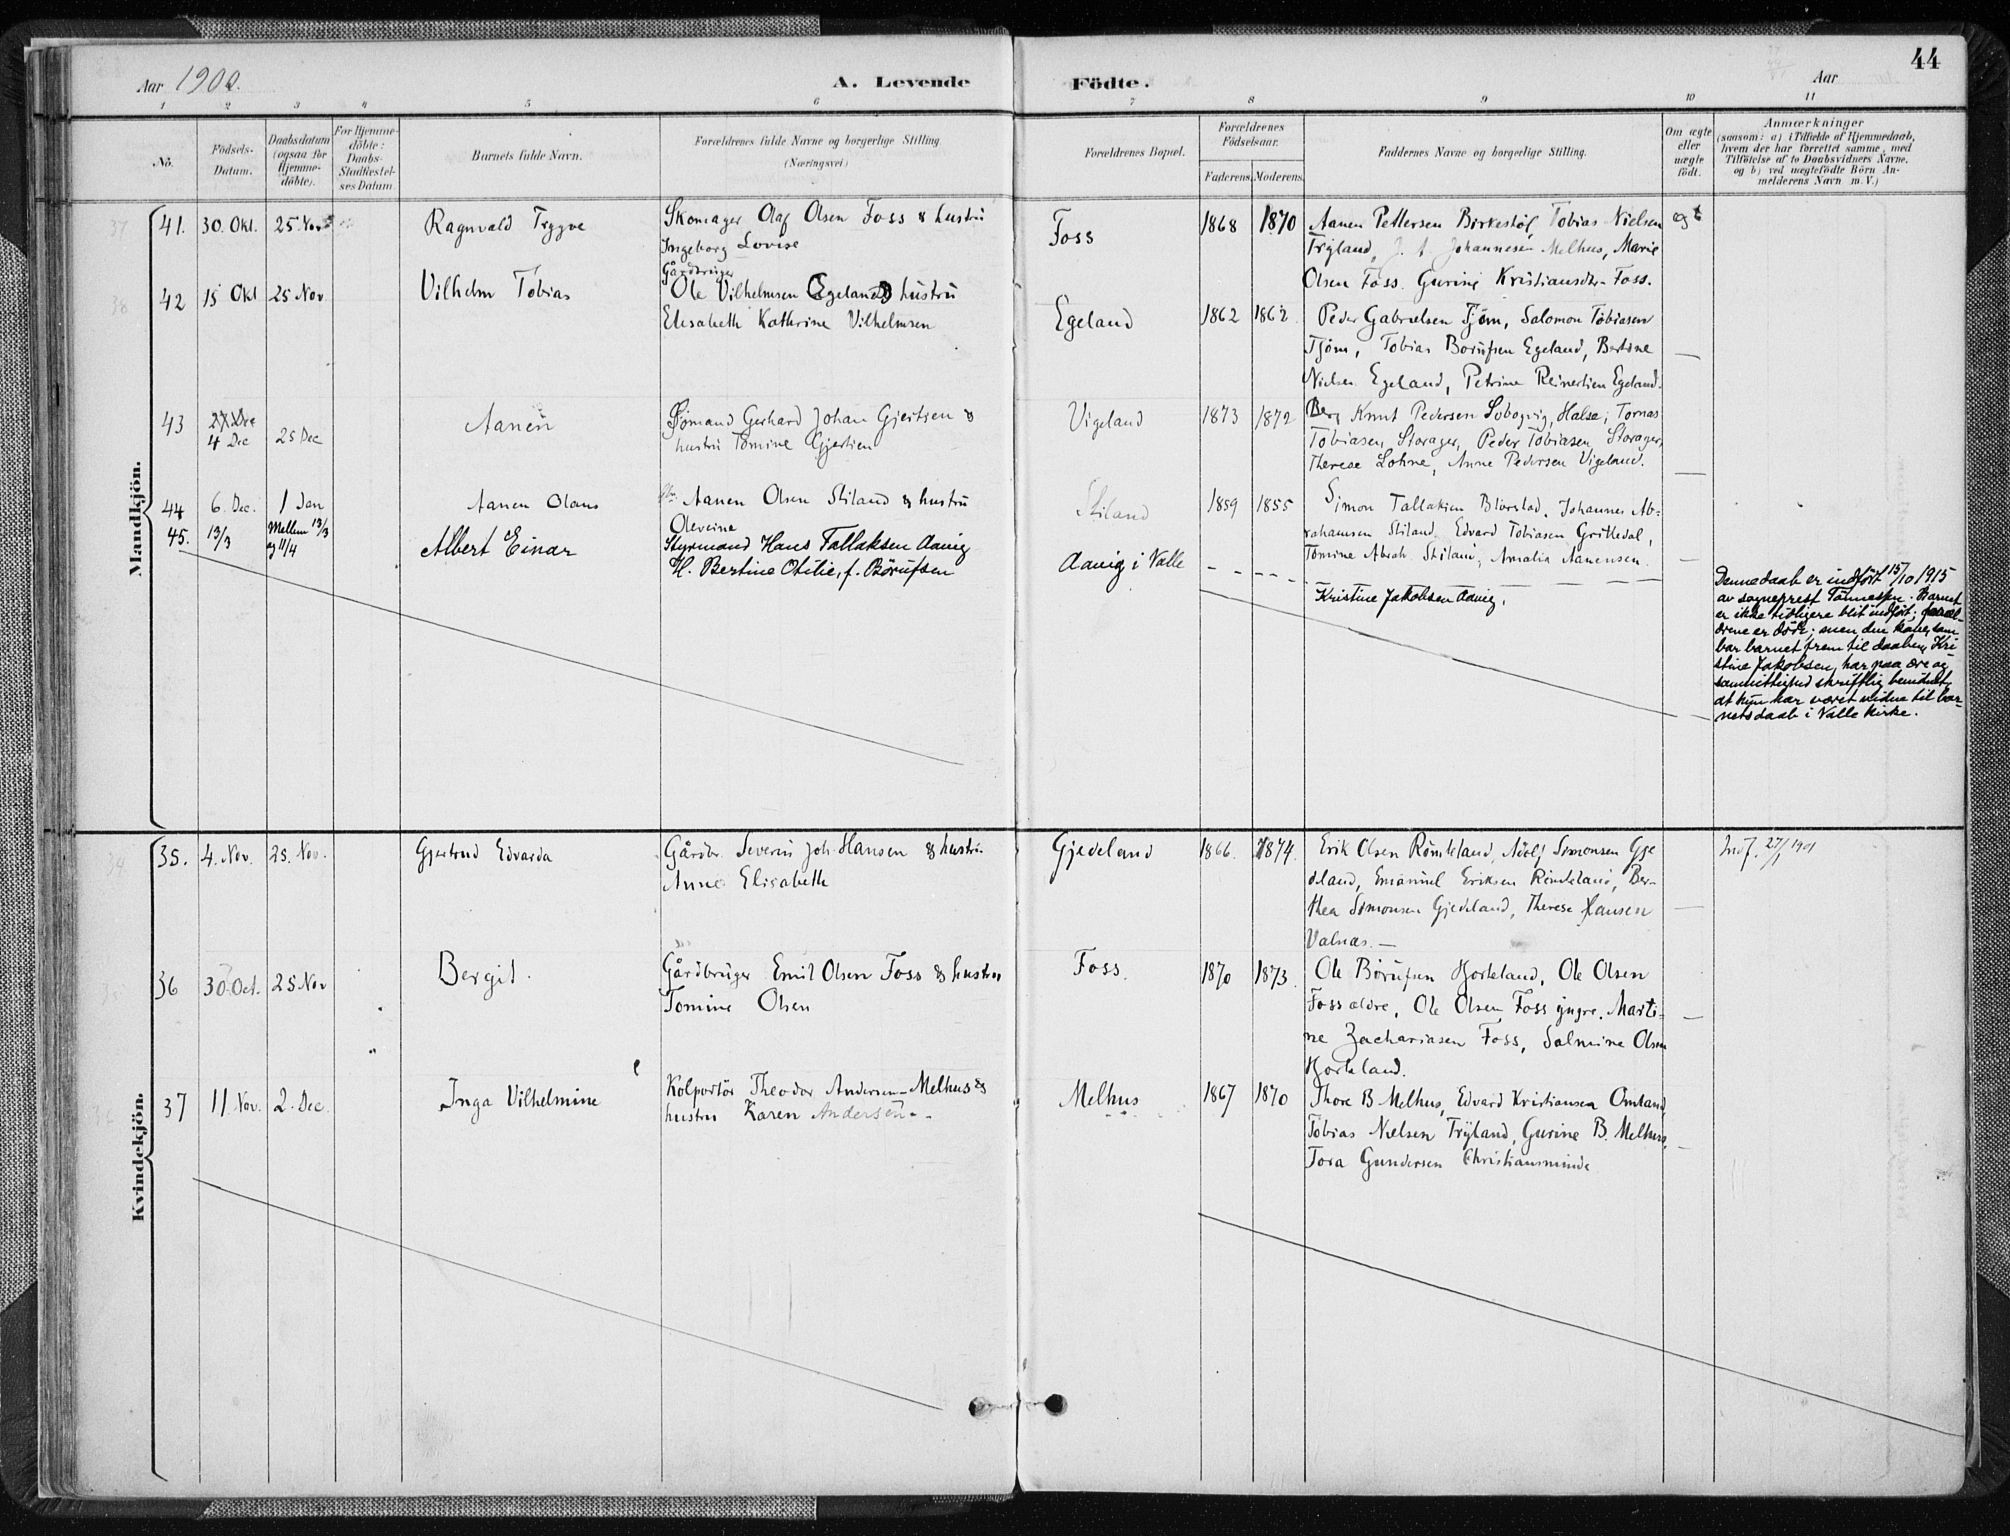 44
Aar 1900.
A. Levende Födte.
Aar
1 2 3 4 5 6 7 8 9 10 11
No.
Födsels-Datum.
Daabsdatum (ogsaa for Hjemme-döbte).
For Hjemme-döbte: Daabs-Stadfæstel-ses Datum
Barnets fulde Navn.
Forældrenes fulde Navne og borgerlige Stilling (Næringsvei)
Forældrenes Bopæl.
Forældrenes Födselsaar.
Faderens. Moderens.
Faddernes Navne og borgerlige Stilling.
Om ægte eller uægte födt.
Anmærkninger
(saasom: a) i Tilfælde af Hjemmedaab,
hvem der har forrettet samme, med
Tilföielse af to Daabsvidners Navne.
og b) ved uægtefödte Börn An-
melderens Navn m. V.)
Mandkjön.
41. 30. Okt. 25 Nov Ragnvald Trygve
Skomager Olaf Olsen Foss & hustru
Ingeborg Lovise
Foss 1868 1870
Aanen Pettersen Birkestøl, Tobias Nielsen
Trÿland, J. A. Johannesen Melhus, Marie
Olsen Foss. Gurine Kristiansdtr Foss.
ægt
42 15 Okt 25 Nov Vilhelm Tobias
Gårdbruger
Ole Vilhelmsen Egeland & hustru
Elisabeth Kathrine Vilhelmsen
Egeland 1862 1862
Peder Gabrielsen Tjøm, Salomon Tobiasen
Tjøm, Tobias Børufsen Egeland, Bertine
Nielsen Egeland, Petrine Reinertsen Egeland.
—
43 4 Dec 25 Dec Aanen
Sjømand Gerhard Johan Gjertsen &
hustru Tomine Gjertsen
Vigeland 1873 1872
Knut Pedersen Halse, Tornas
Tobiasen, Storager, Peder Tobiasen Storager,
Therese Lohne, Anne Pedersen Vigeland.
—
44 6. Dec. 1 Jan Aanen Olaus
Aanen Olsen Stiland & hustru
Oleveine
Stiland 1859 1855
Simon Tallaksen Johannes Ab=
rahamsen Stiland. Edvard Tobiasen
Tomine Abrah. Stiland, Amalia Aanensen.
—
45. 13/3 Mellem 13/3
og 11/4
Albert Einar
Styrmand Hans Tallaksen Aavig
H. Bertine Otilie, f. Börufsen
Aavig i Valle - - - -
Kristine Jakobsen Aavig.
Denne daab er indført 15/10 1915
av sogneprest Tönnessen. Barnet
er ikke tidligere blit indført; foræl-
drene er døde; men den kone, som
bar barnet frem til daaben, Kri
stine Jakobsen, har paa ære og
samvittighed skriftlig bevidnet,
at hun har været vidne til bar-
nets daab i Valle kirke.
Kvindekjön.
35. 4. Nov. 25. Nov. Gjertrud Edvarda
Gårdbr. Severin Joh. Hansen & hustru
Anne Elisabeth
Gjedeland 1866. 1874.
Erik Olsen Røndeland, Adolf Simonsen Gje
deland, Emanuel Eriksen Røndeland, Ber-
thea Simonsen Gjedeland, Therese Hansen
Valnæs. —
—
Indf. 27/1 1901
36 30. Oct. 25 Nov Bergit.
Gårdbruger Emil Olsen Foss & hustru
Tomine Olsen
Foss. 1870 1873.
Ole Børufsen Hørteland, Ole Olsen
Foss ældre, Ole Olsen Foss yngre. Marti-
ne Zachariasen Foss, Salmine Olsen
Hørteland.
—
37 11 Nov. 2. Dec. Inga Vilhelmine
Kolportør Theodor Andersen Melhus &
hustru Karen Andersen
Melhus 1867 1870
Thore B Melhus, Edvard Kristiansen Omland,
Tobias Nielsen Trÿland, Gurine B. Melhus,
Tora Gundersen Christiansminde
—